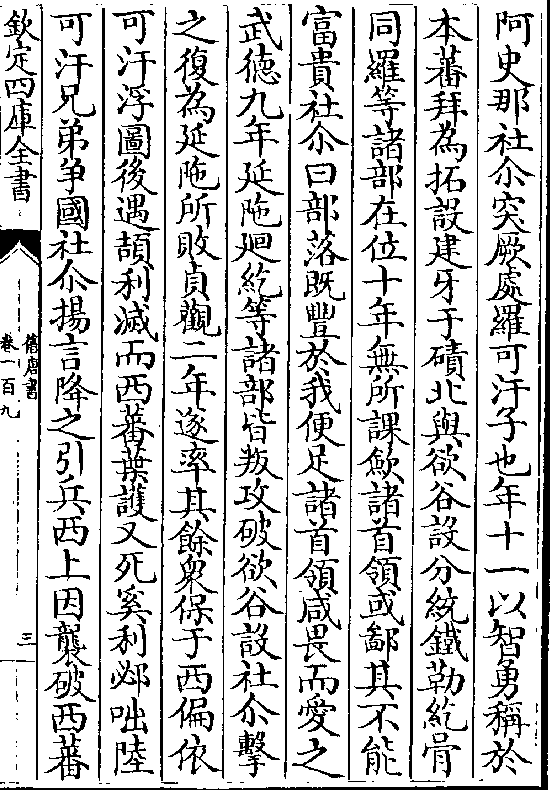 阿史那社尒突厥處羅可汗子也年十一以智勇稱於
本蕃拜為拓設建牙于磧北與欲谷設分統鐵勒紇骨
同羅等諸部在位十年無所課歛諸首領或鄙其不能
富貴社尒曰部落既豐於我便足諸首領咸畏而愛之
武德九年延陁廻紇等諸部皆叛攻破欲谷設社尒擊
之復為延陁所敗貞觀二年遂率其餘衆保于西偏依
可汗浮圖後遇頡利滅而西蕃葉護又死奚利邲咄陸
可汗兄弟爭國社尒揚言降之引兵西上因襲破西蕃
欽定四庫全書
舊唐書
卷一百九
三